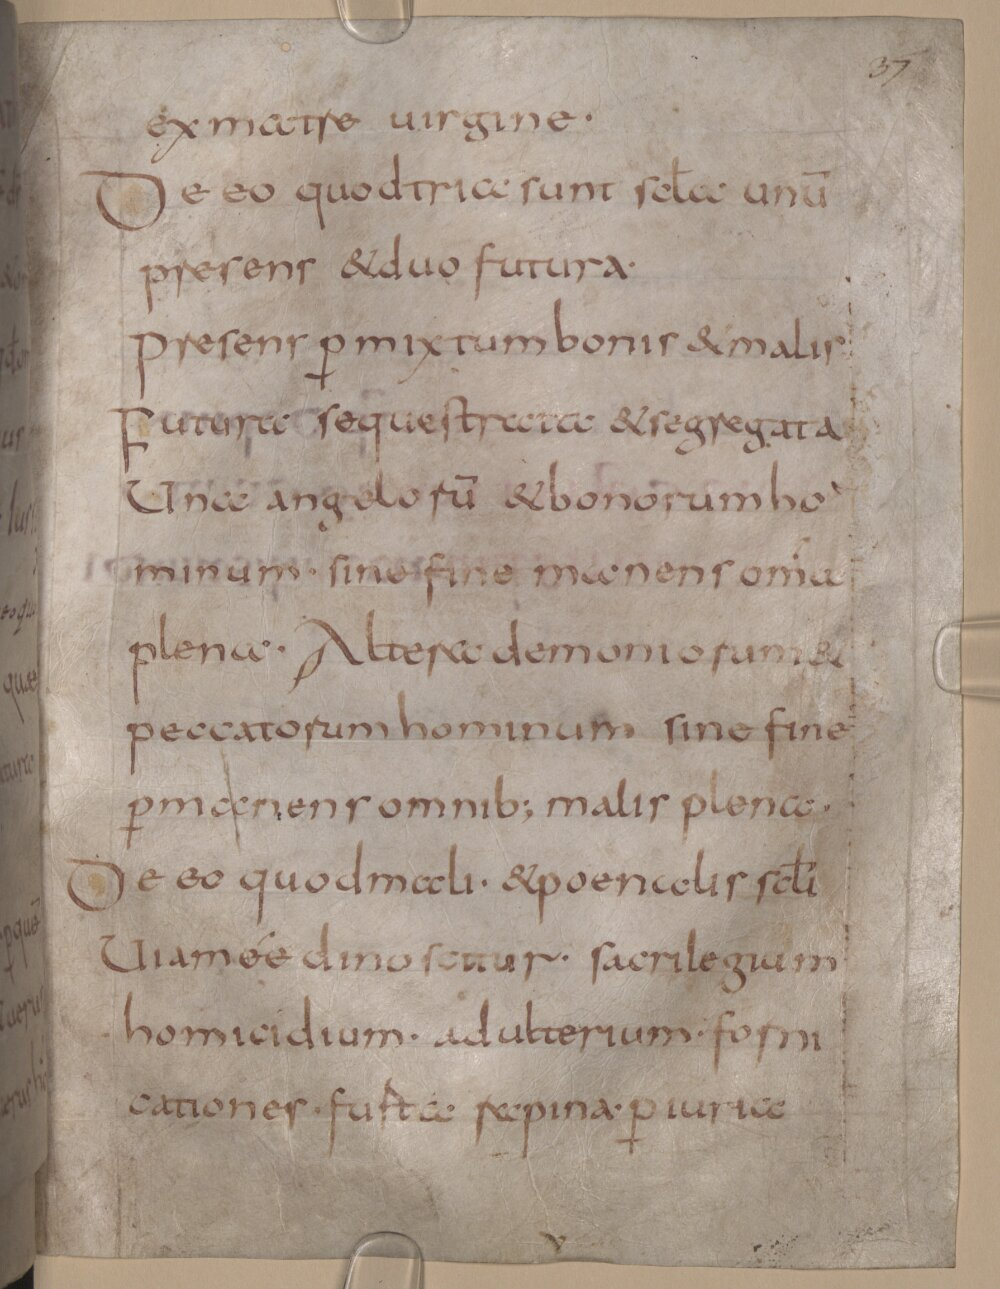 37
ex matre uirgine·
De eo quod tria sunt sc̅l̅a unū
presens & duo futura·
presens p̲mixtum bonis & malis·
Futura sequestrata & segregata
Una angelorū & bonorum ho
minum· sine fine manens om̅ia
plena· Altera demoniorum &
peccatorum hominum sine fine
p̲manens omnib; malis plena·
De eo quod mali· & poenalis sc̅l̅i
Uiam ee̅ dinoscitur· sacrilegium
homicidium· adulterium· forni
cationes· furta rapina· p̲iuria